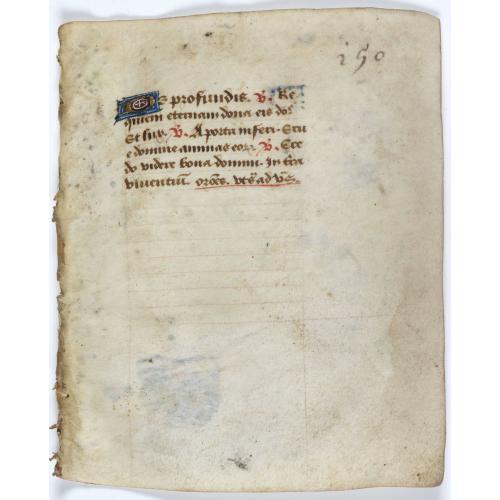 150
De profundis. ℣. Re
quiem eternam dona eis do͞
Et lux. ℣. A porta inferi. Eru
e domine animas eorꝝ. ℣. Cre
do videre bona domini. In t͞ra
viventiu͞. or͞oes. vts̄ ad v͞s.